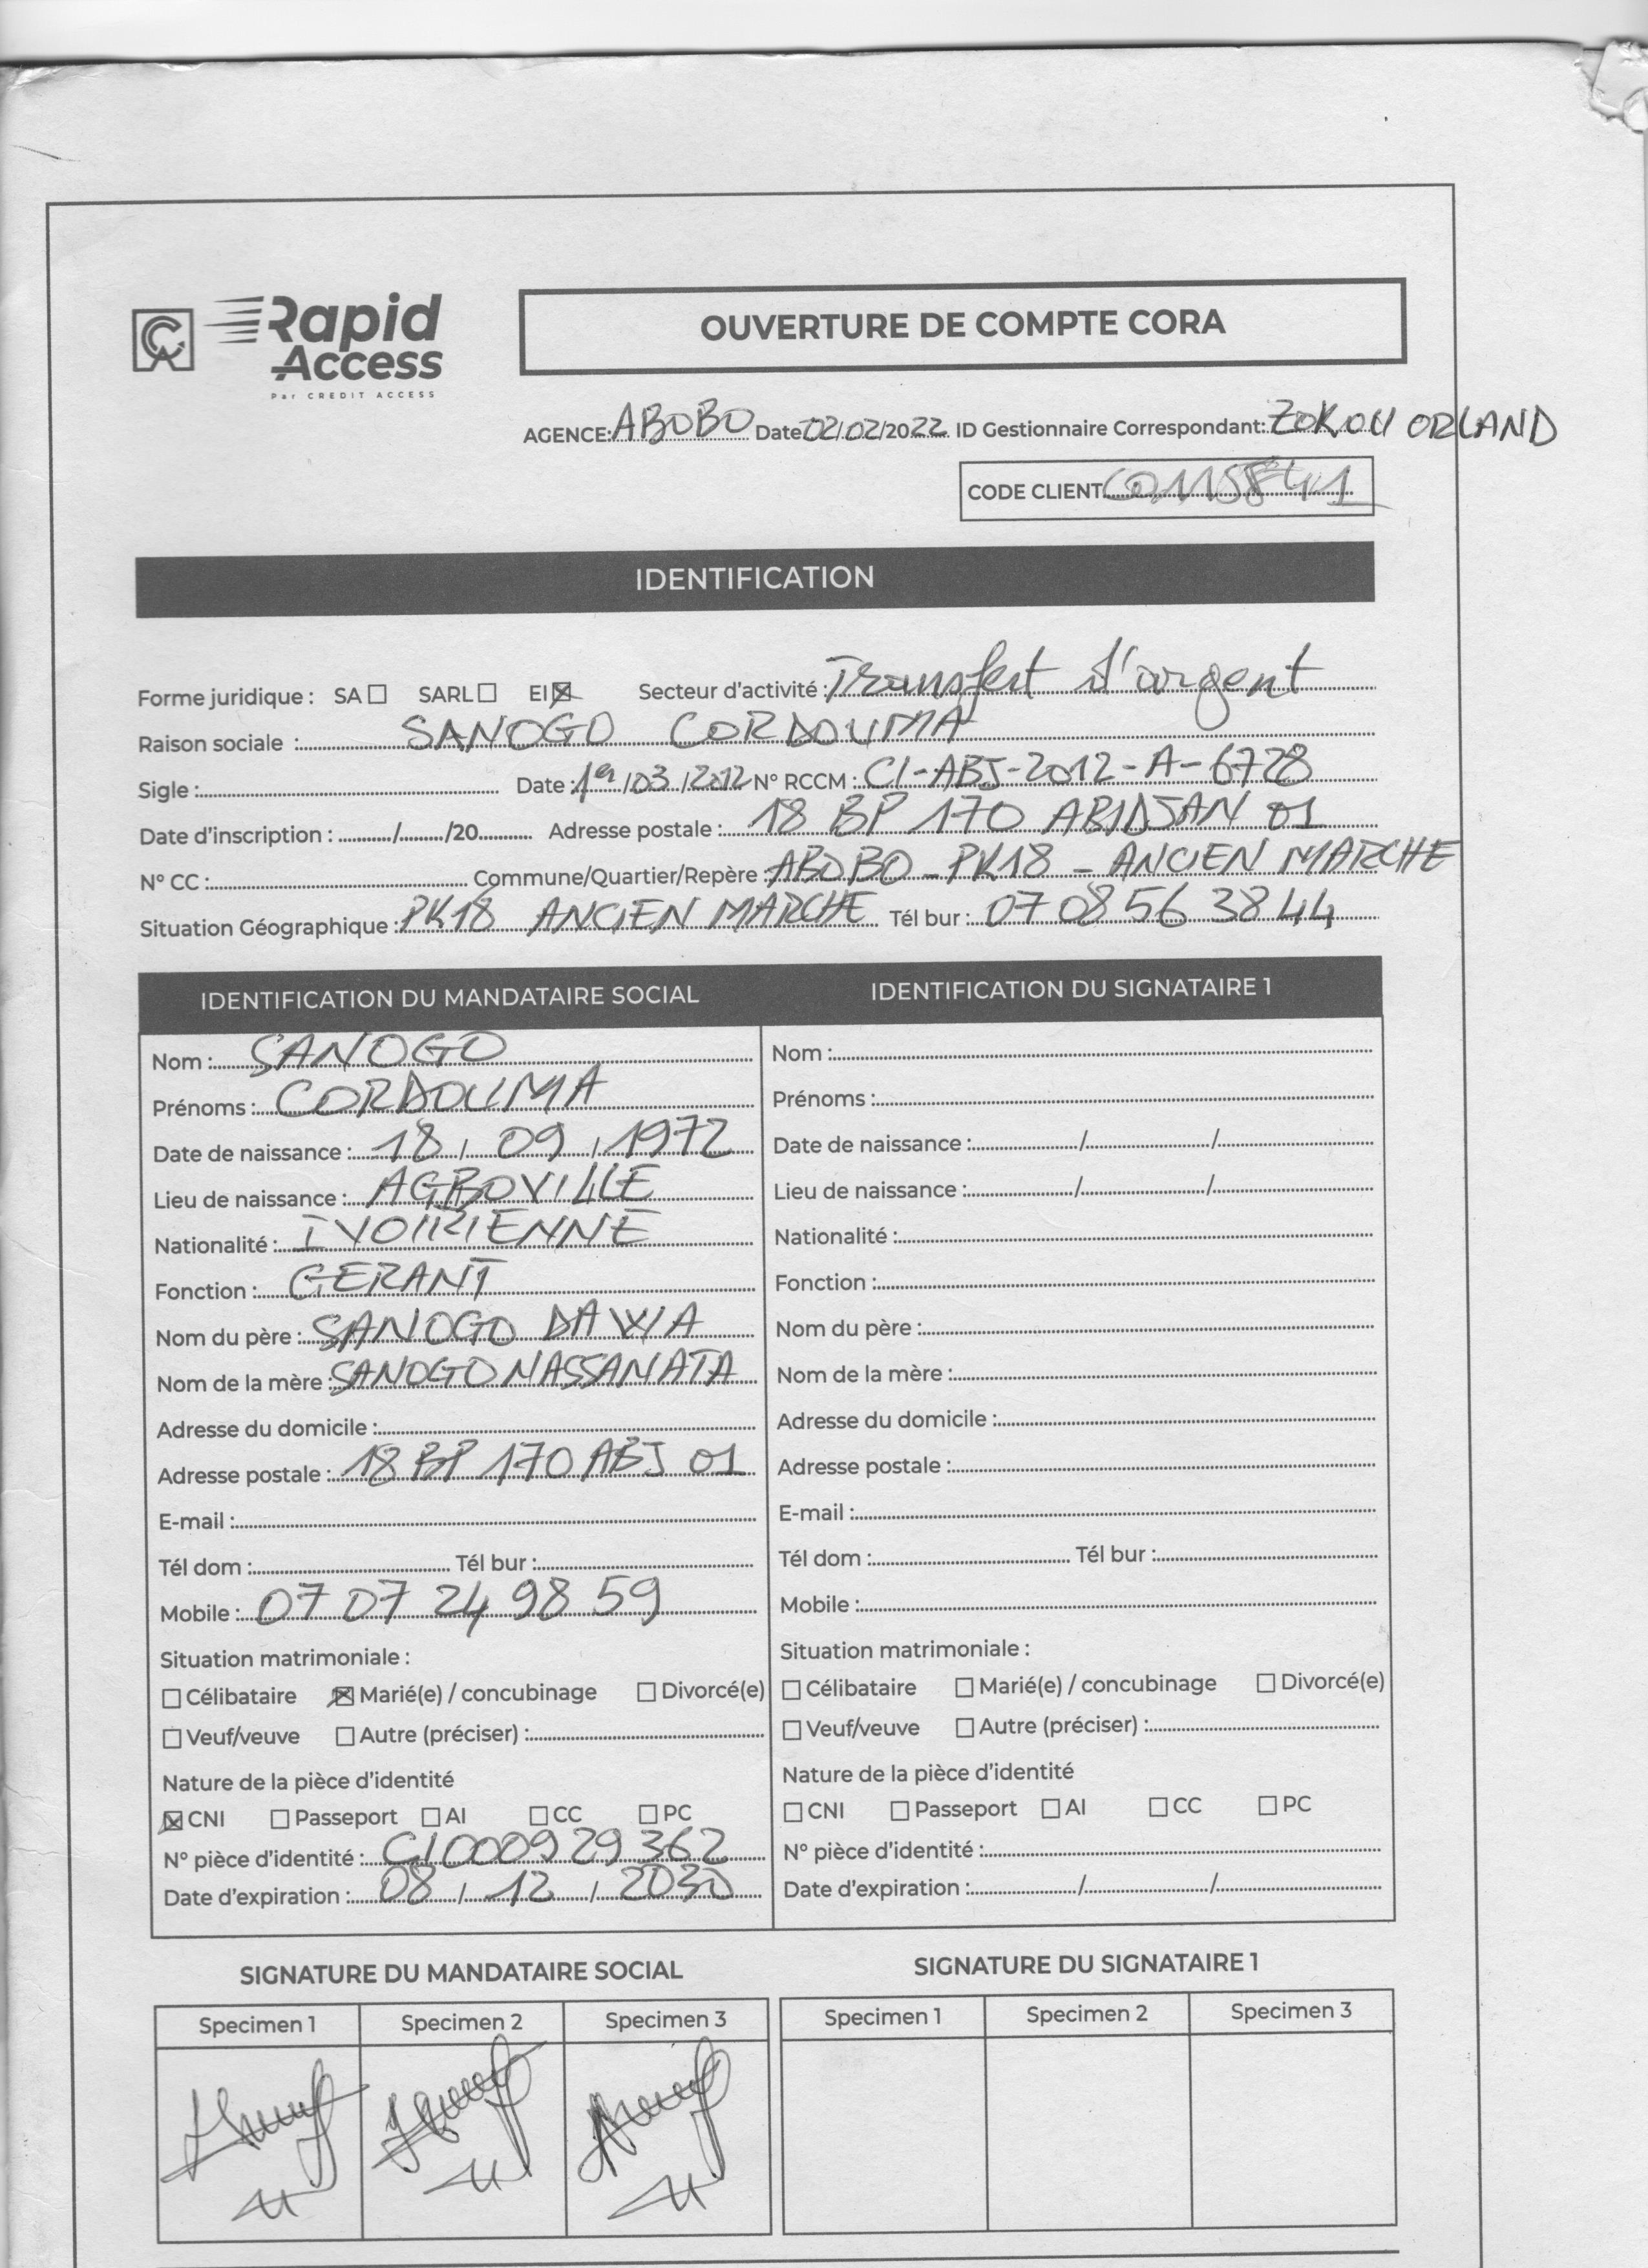 Rapid
Access
Par CREDIT ACCESS
OUVERTURE DE COMPTE CORA
AGENCE: ABOBO Date 02/02/2022 ID Gestionnaire Correspondant: ZOKOU ORLAND
CODE CLIENT CO115841
IDENTIFICATION
Forme juridique : SA ☐ SARL ☐ EI ☒ Secteur d'activité : Transfert d'argent
Raison sociale : SANOGO CORDOUMA
Sigle : Date : 1er/03/2012 N° RCCM : CI-ABJ-2012-A-6728
Date d'inscription : ......../......../20........ Adresse postale : 18 BP 170 ABIDJAN 01
N° CC : Commune/Quartier/Repère : ABOBO - PK18 - ANCIEN MARCHE
Situation Géographique : PK18 ANCIEN MARCHE Tél bur : 07 08 56 38 44
IDENTIFICATION DU MANDATAIRE SOCIAL
Nom : SANOGO
Prénoms : CORDOUMA
Date de naissance : 18/09/1972
Lieu de naissance : AGBOVILLE
Nationalité : IVOIRIENNE
Fonction : GERANT
Nom du père : SANOGO DAWA
Nom de la mère : SANOGO NASSANATA
Adresse du domicile :
Adresse postale : 18 BP 170 ABJ 01
E-mail :
Tél dom : Tél bur :
Mobile : 07 07 24 98 59
Situation matrimoniale :
☐ Célibataire ☒ Marié(e) / concubinage ☐ Divorcé(e)
☐ Veuf/veuve ☐ Autre (préciser) :
Nature de la pièce d'identité
☒ CNI ☐ Passeport ☐ AI ☐ CC ☐ PC
N° pièce d'identité : CI000929362
Date d'expiration : 08/12/2030
IDENTIFICATION DU SIGNATAIRE 1
Nom :
Prénoms :
Date de naissance : ......../......../........
Lieu de naissance : ......../......../........
Nationalité :
Fonction :
Nom du père :
Nom de la mère :
Adresse du domicile :
Adresse postale :
E-mail :
Tél dom : Tél bur :
Mobile :
Situation matrimoniale :
☐ Célibataire ☐ Marié(e) / concubinage ☐ Divorcé(e)
☐ Veuf/veuve ☐ Autre (préciser) :
Nature de la pièce d'identité
☐ CNI ☐ Passeport ☐ AI ☐ CC ☐ PC
N° pièce d'identité :
Date d'expiration : ......../......../........
SIGNATURE DU MANDATAIRE SOCIAL
Specimen 1 Specimen 2 Specimen 3
SIGNATURE DU SIGNATAIRE 1
Specimen 1 Specimen 2 Specimen 3